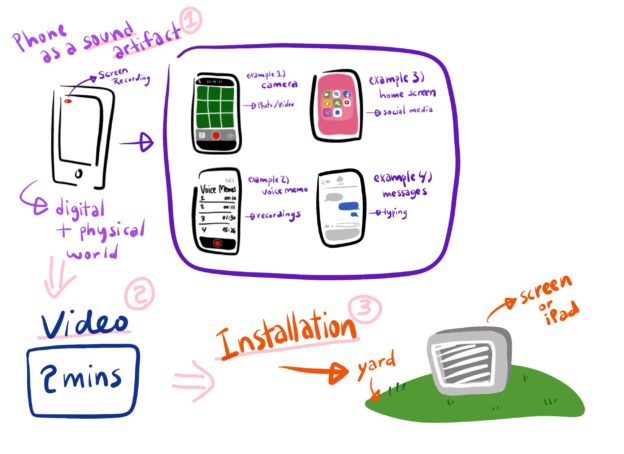 Phone
as a sound
artifact
1
Screen
Recording
digital
+ physical
world
example 1)
camera
Photo/Video
example 2)
voice memo
recordings
Voice Memos
1 00:10
2 00:11
3 01:30
4 05:26
example 3)
home screen
social media
example 4)
messages
typing
2
Video
2 mins
3
Installation
yard
screen
or
iPad